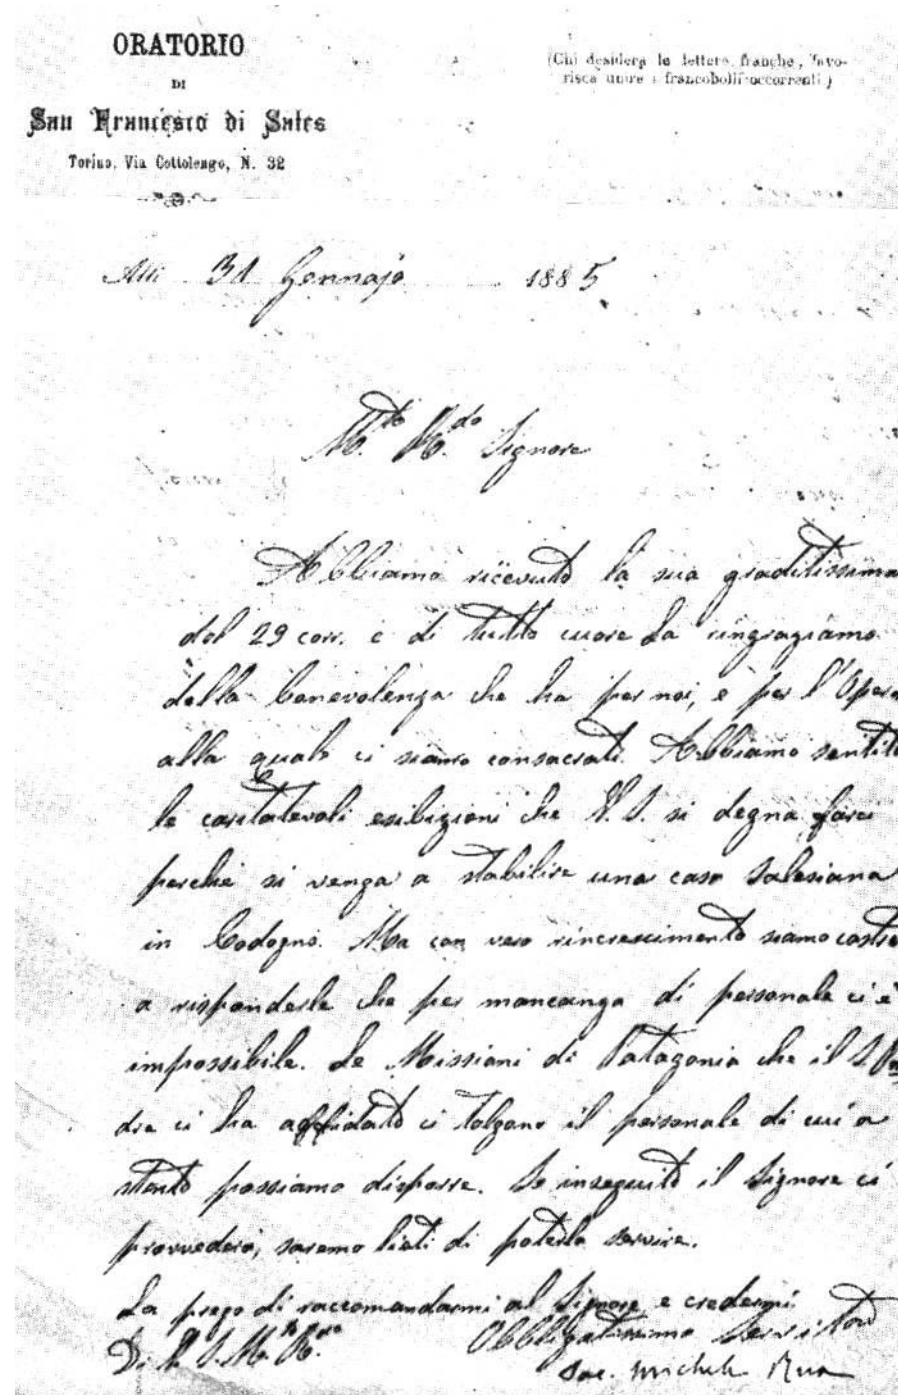 ORATORIO
DI
San Francesco di Sales
Torino, Via Cottolengo, N. 32
(Chi desidera le lettere franche, favo-
risca unire i francobolli occorrenti.)
Alli 31 Gennajo 1885
M.to R.do Signore
Abbiamo ricevuto la sua graditissima
del 29 corr. e di tutto cuore La ringraziamo
della benevolenza che ha per noi, e per l'Opera
alla quale ci siamo consacrati. Abbiamo sentito
le caritatevoli esibizioni che V. S. si degna farci
perchè si venga a stabilire una casa Salesiana
in Codogno. Ma con vero rincrescimento siamo costre
a risponderle che per mancanza di personale ci è
impossibile. Le Missioni di Patagonia che il S. Pa
dre ci ha affidato ci tolgono il personale di cui a
stento possiamo disporre. Se inseguito il Signore ci
provvederà, saremo lieti di poterla servire.
La prego di raccomandarmi al Signore e credermi
Di V. S. M.to R.do
Obbligatissimo Servitore
Sac. Michele Rua